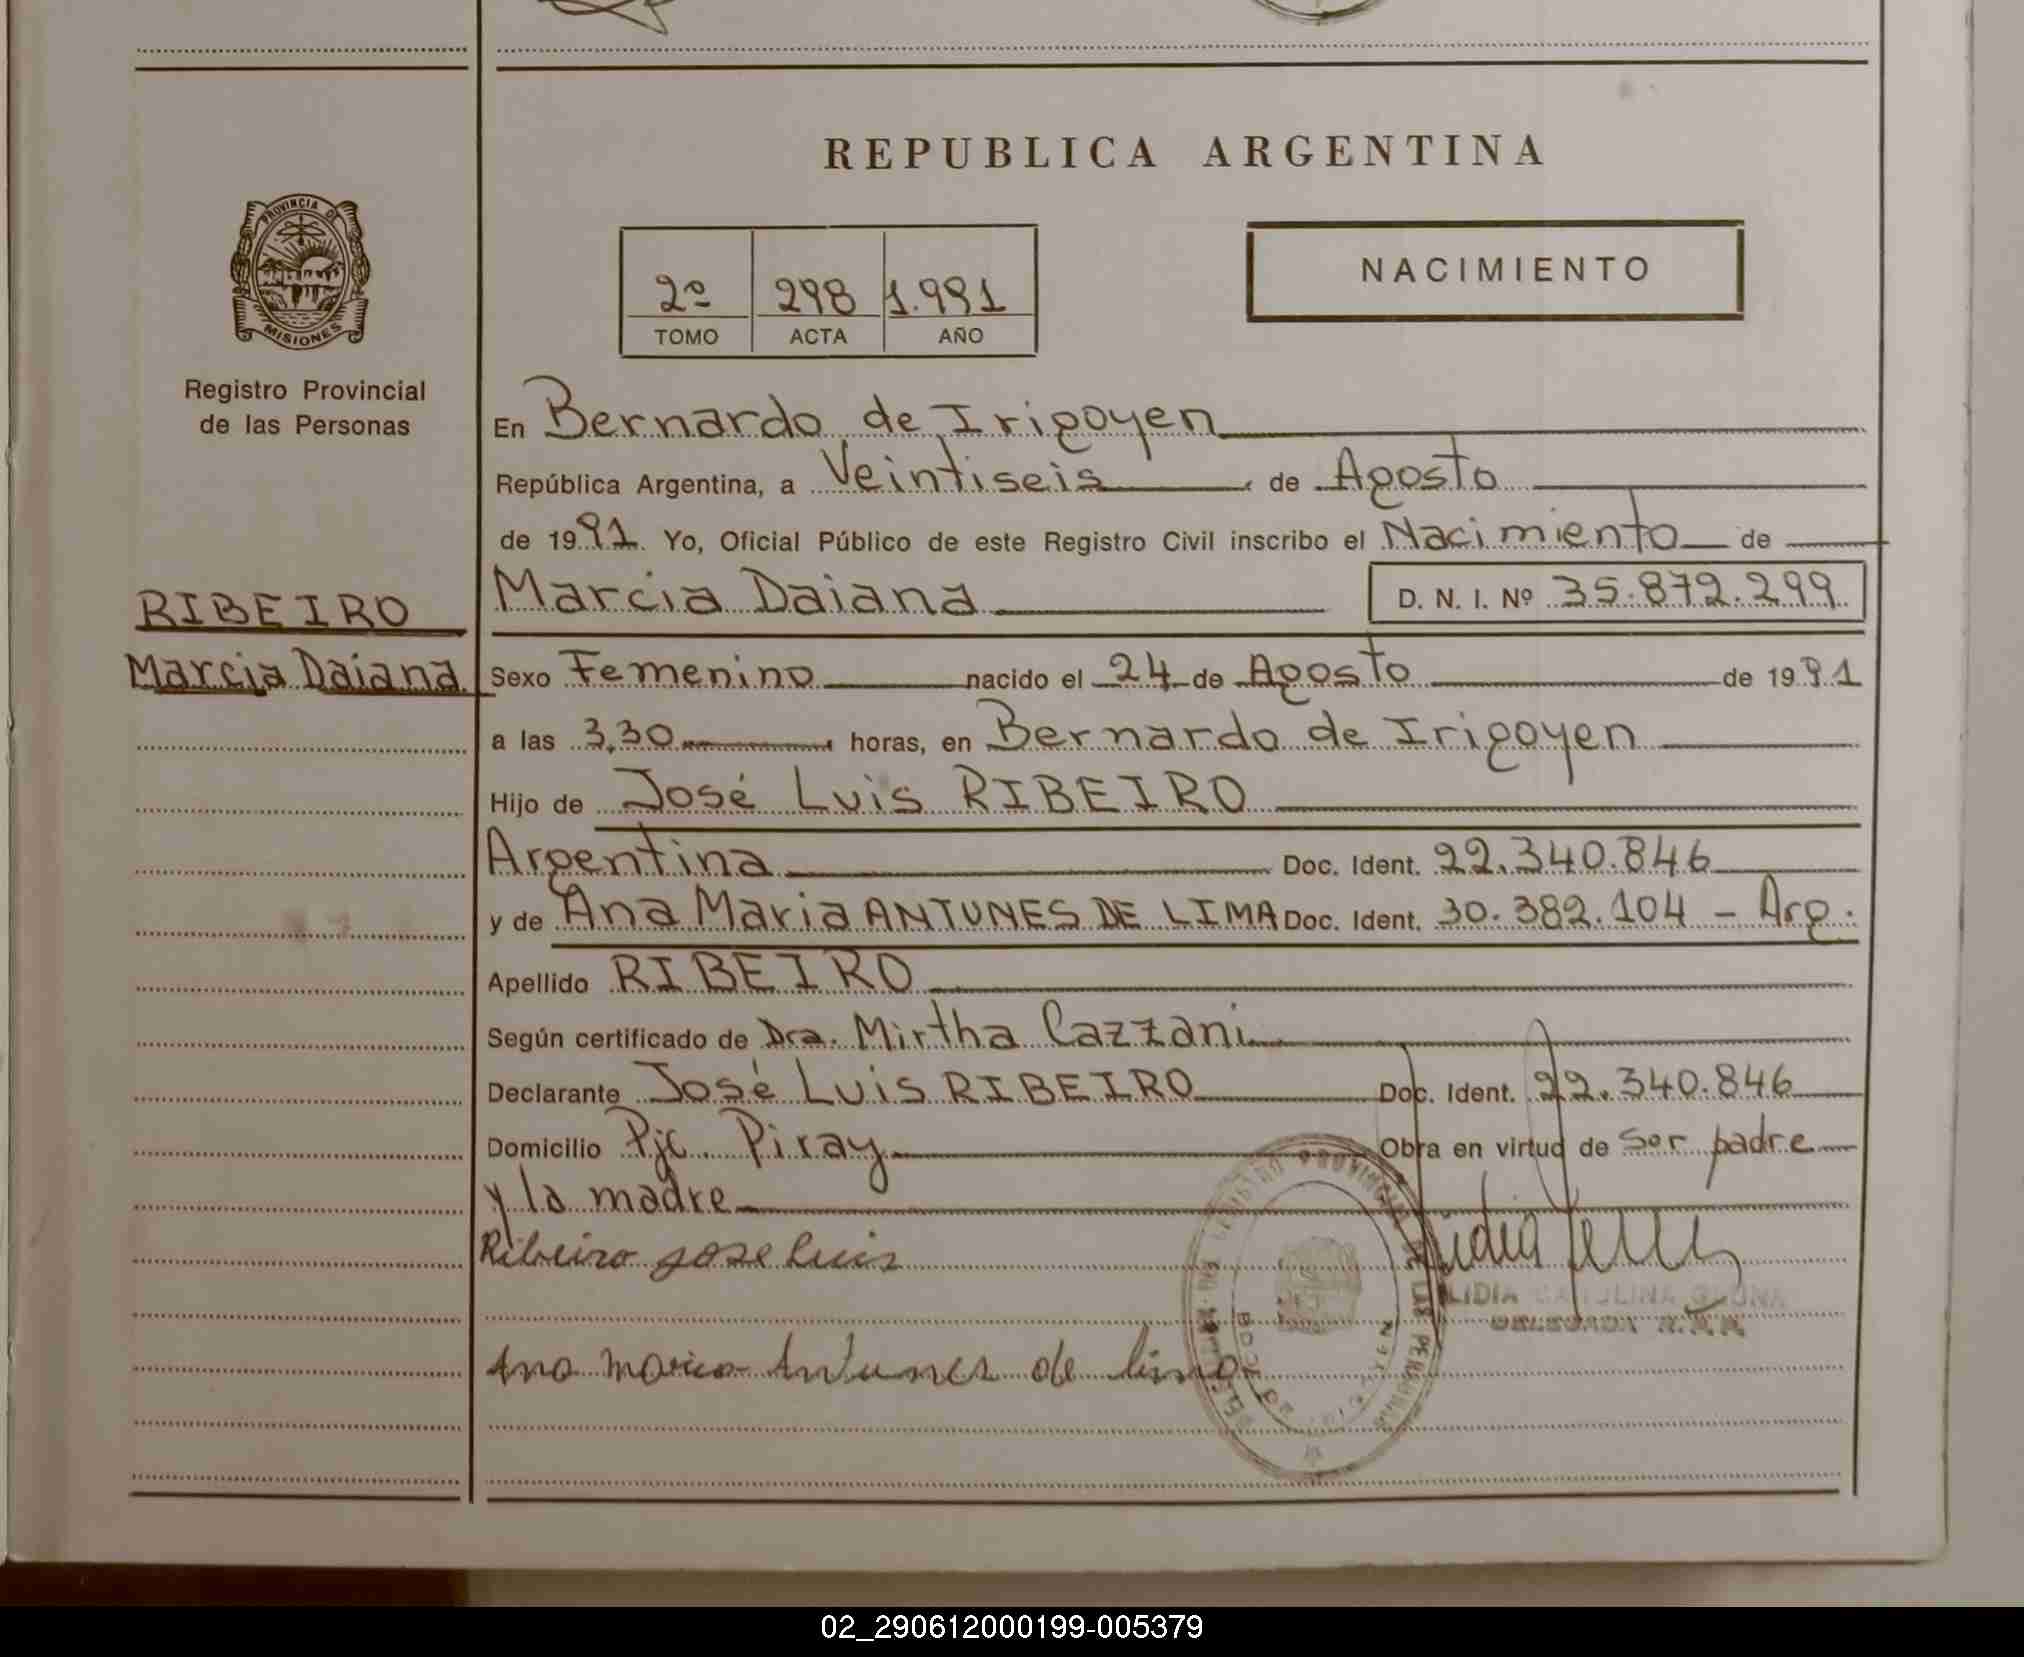 REPUBLICA ARGENTINA
PROVINCIA DE
MISIONES
Registro Provincial
de las Personas
2º 298 1.991
TOMO ACTA AÑO
NACIMIENTO
En Bernardo de Irigoyen
República Argentina, a Veintiseis de Agosto
de 1991. Yo, Oficial Público de este Registro Civil inscribo el Nacimiento de
RIBEIRO
Marcia Daiana
Marcia Daiana D. N. I. Nº 35.872.299
Sexo Femenino nacido el 24 de Agosto de 1991
a las 3,30 horas, en Bernardo de Irigoyen
Hijo de José Luis RIBEIRO
Argentina Doc. Ident. 22.340.846
y de Ana Maria ANTUNES DE LIMA Doc. Ident. 30.382.104 - Arg.
Apellido RIBEIRO
Según certificado de Dra. Mirtha Cazzani
Declarante José Luis RIBEIRO Doc. Ident. 22.340.846
Domicilio Pje. Piray Obra en virtud de ser padre
y la madre
Ribeiro jose luis
LIDIA
Ana Maria Antunes de lima
02_290612000199-005379